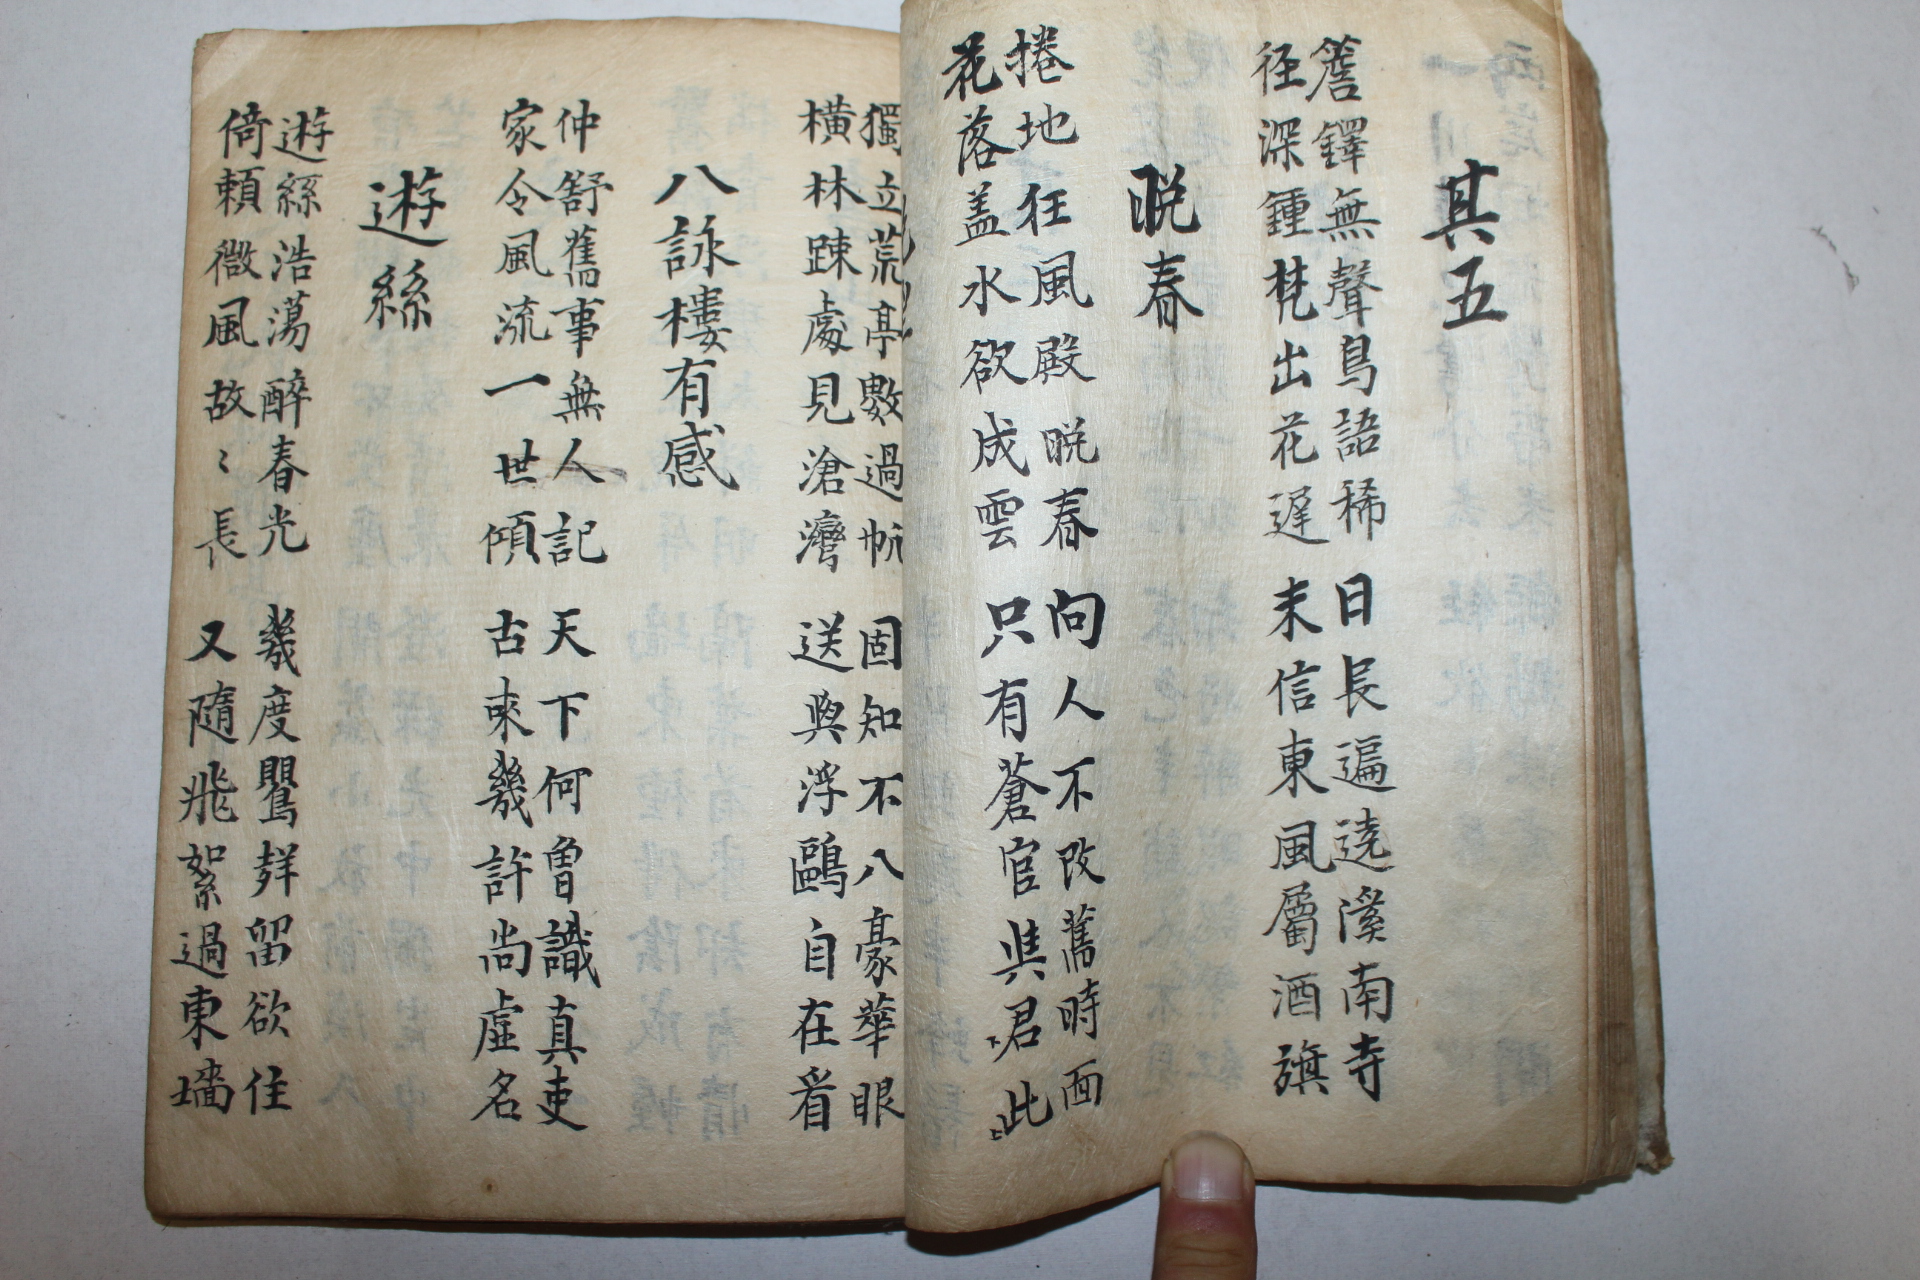 其五
簷鐸無聲鳥語稀 日長遍遶溪南寺
径深鍾梵出花遅 未信東風屬酒旗
晩春
捲地狂風殿晩春 向人不改舊時面
花落盖水欲成雲 只有蒼官與君此
獨立荒亭數過帆 固知不八豪華眼
横林踈處見滄灣 送與浮鷗自在看
八詠樓有感
仲舒舊事無人記 天下何曾識真吏
家令風流一世傾 古來幾許尚虛名
逰絲
逰絲浩蕩醉春光 幾度鸎留欲住
倚頼微風故〻長 又隨飛絮過東墻